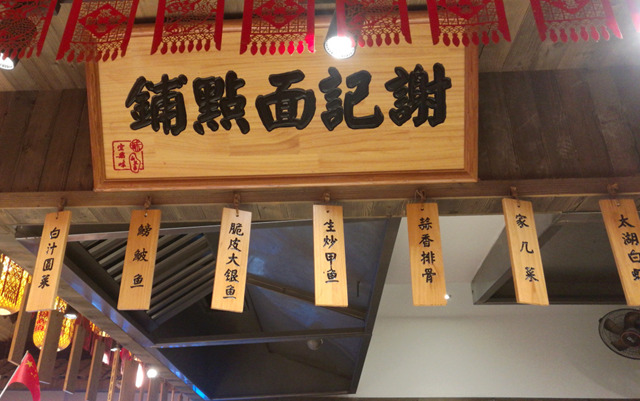 謝記面點鋪
白汁圆菜
鳑鲏鱼
脆皮大银鱼
生炒甲鱼
蒜香排骨
家几菜
太湖白